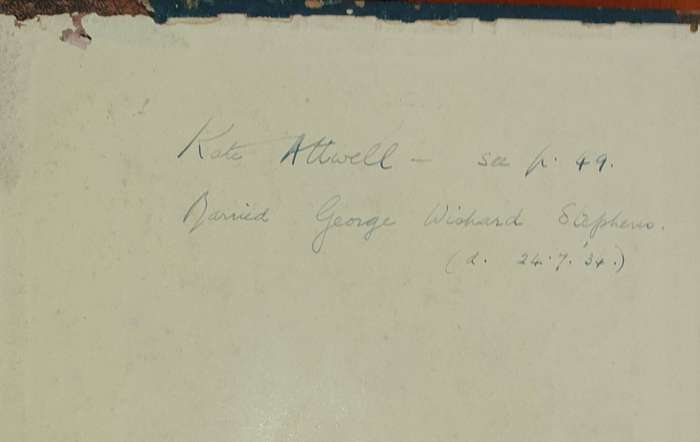 Kate Attwell — see p. 49.
Married George Wishard Stephens.
(d. 24.7.34.)